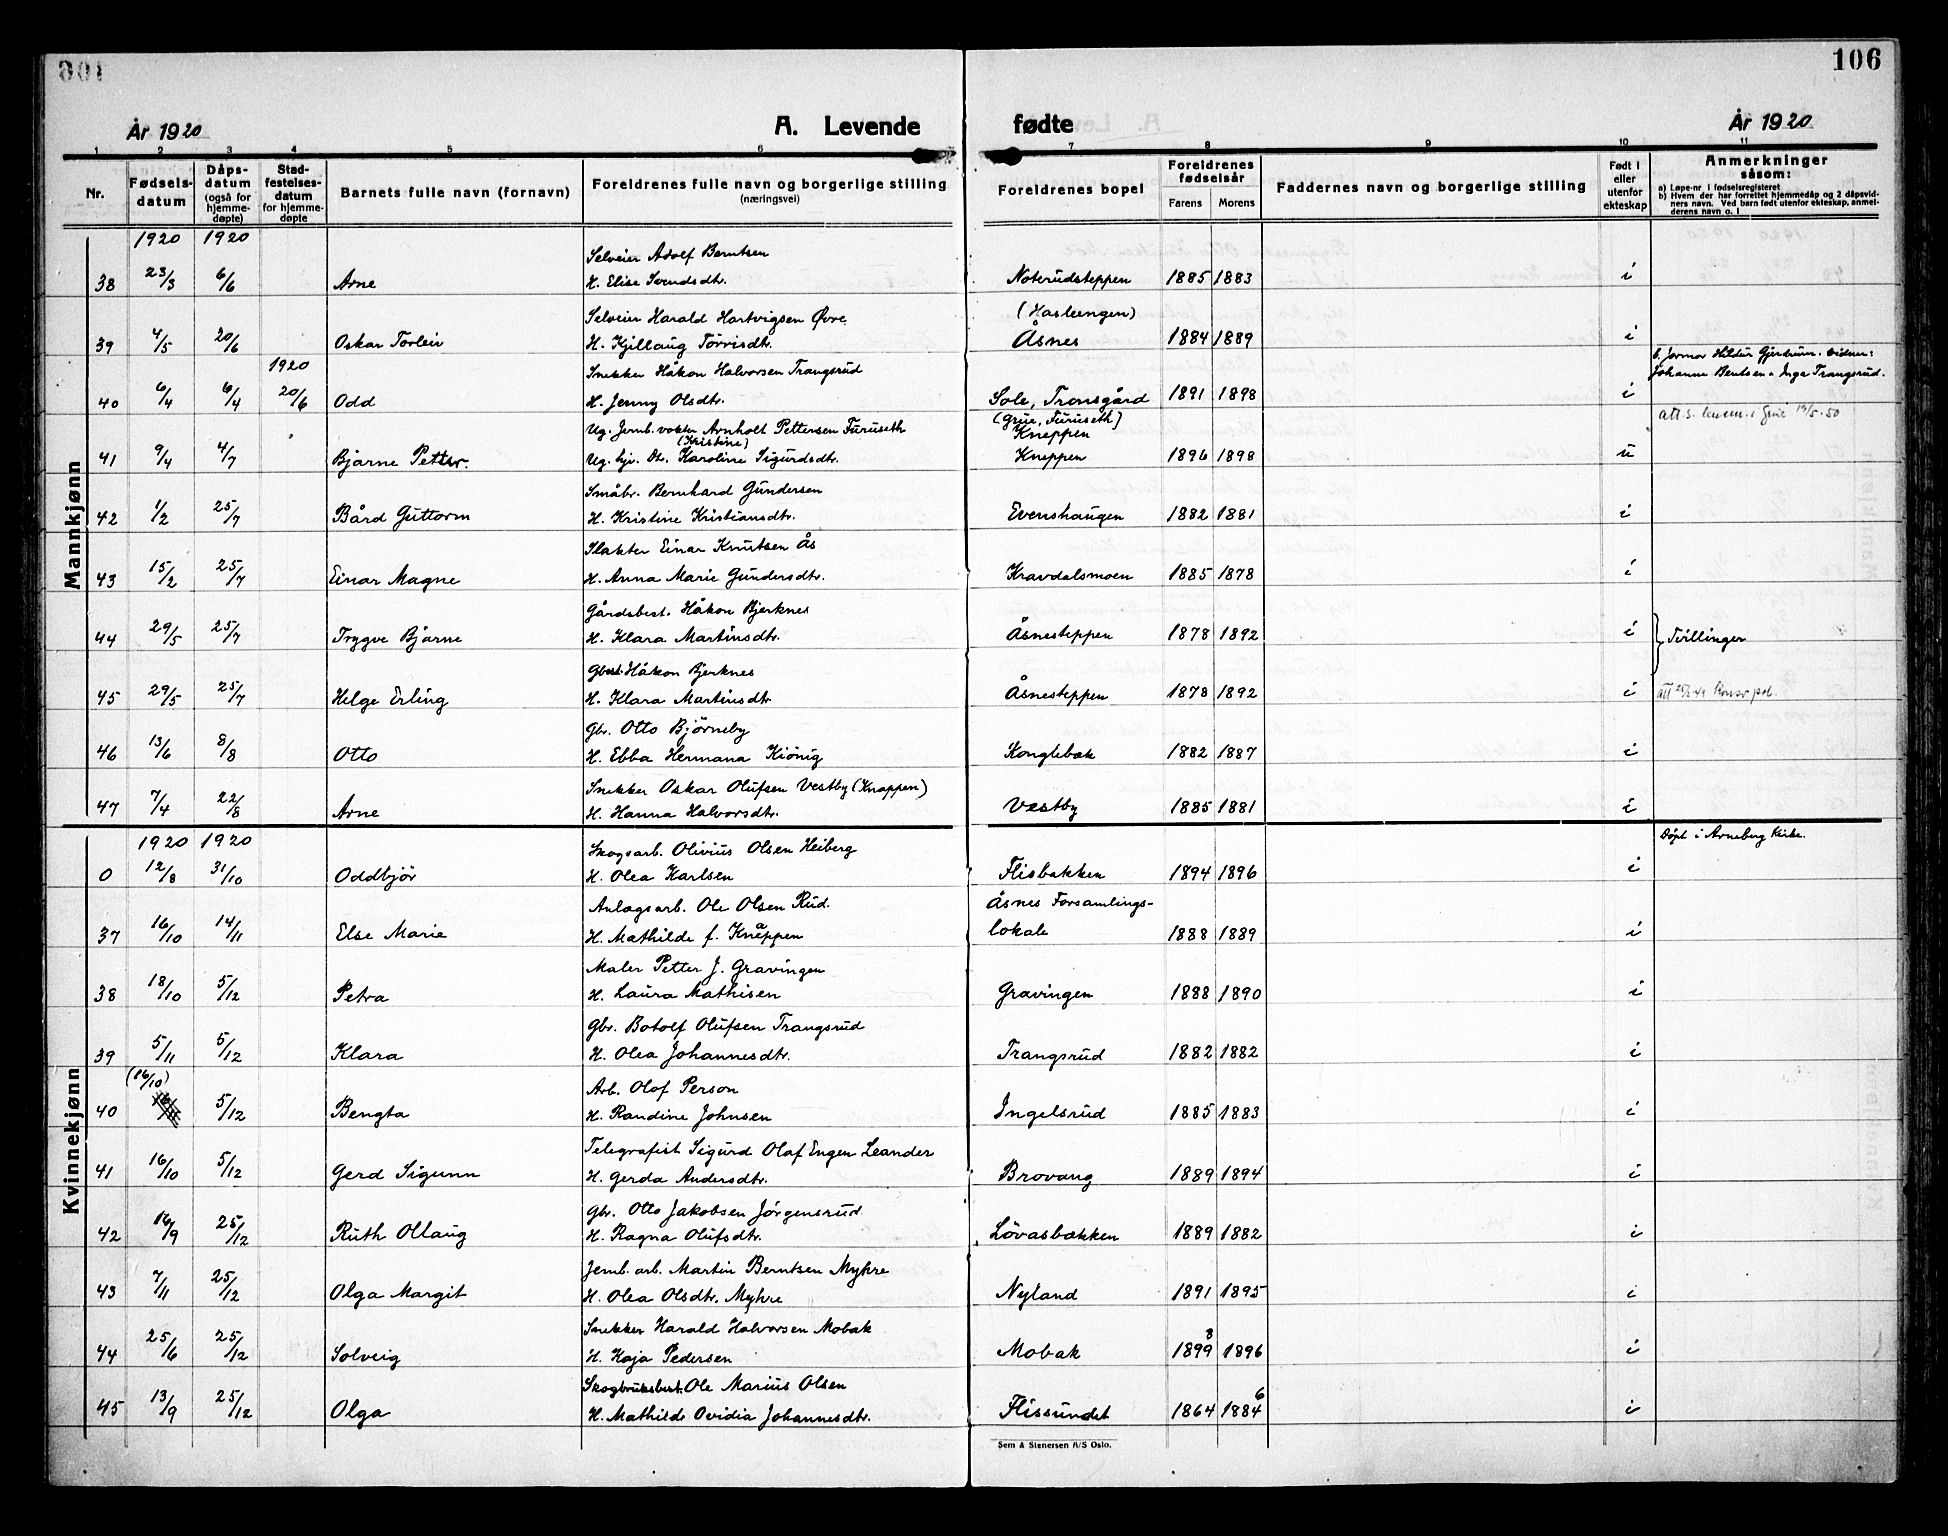 106
År 1920
A. Levende
fødte
År 1920
1 2 3 4 5 6 7 8 9 10 11
Nr.
Fødsels-
datum
Dåps-
datum
(også for
hjemme-
døpte)
Stad-
festelses-
datum
for hjemme-
døpte
Barnets fulle navn (fornavn)
Foreldrenes fulle navn og borgerlige stilling
(næringsvei)
Foreldrenes bopel
Foreldrenes
fødselsår
Farens Morens
Faddernes navn og borgerlige stilling
Født i
eller
utenfor
ekteskap
Anmerkninger
såsom:
a) Løpe-nr. i fødselsregisteret
b) Hvem der har forrettet hjemmedåp og 2 dåpsvid-
ners navn. Ved barn født utenfor ekteskap, anmel-
derens navn o. l
Mannkjønn
1920 1920
Selveier Adolf Berntsen
38 23/3 6/6 Arne H. Elise Svendsdtr. Noterudsteppen 1885 1883 i
Selveier Harald Hartvigsen Øvre (Hasleengen)
39 4/5 20/6 Oskar Torleiv H. Kjillaug Torrisdtr. Åsnes 1884 1889 i
1920 Snekker Håkon Halvorsen Trangsrud b. Jormor Hilder Gjerdrum. vidner:
Johanne Bentsen o Inga Trangsrud.
40 6/4 6/4 20/6 Odd H. Jenny Olsdtr. Sole, Tronsgård 1891 1898 i
Ug. Jernb.vokter Arnholt Pettersen Furuseth (Grue, Furuseth) Kneppen att. s. i Grue 19/5-50
(Kristine)
41 9/4 4/7 Bjarne Petter. Ug. hjv. Dr. Karoline Sigurdsdtr. Kneppen 1896 1898 u
Småbr. Bernhard Gundersen
42 1/2 25/7 Bård Guttorm H. Kristine Kristiansdtr. Evenshaugen 1882 1881 i
Slakter Einar Knutsen Ås
43 15/2 25/7 Einar Magne H. Anna Marie Gundersdtr. Kravdalsmoen 1885 1878 i
Gårdsbest. Håkon Bjerknes
44 29/5 25/7 Trygve Bjarne H. Klara Martinsdtr. Åsnesteppen 1878 1892 i Tvillinger
Gbest. Håkon Bjerknes
45 29/5 25/7 Helge Erling H. Klara Martinsdtr. Åsnesteppen 1878 1892 i
Gbr. Otto Björneby
46 13/6 8/8 Otto H. Ebba Hermana Kiönig Konglebak 1882 1887 i
Snekker Oskar Olufsen Vestby (Knappen)
47 7/4 22/8 Arne H. Hanna Halvorsdtr. Vestby 1885 1881 i
Kvinnekjønn
1920 1920
Skogsarb. Olivius Olsen Heiberg Döpt i Arneberg Kirke.
0 12/8 31/10 Oddbjör H. Olea Karlsen Flisbakken 1894 1896 i
Anlagsarb. Ole Olsen Rud. Åsnes Forsamlings-
37 16/10 14/11 Else Marie H. Mathilde f. Knappen lokale 1888 1889 i
Maler Petter J. Gravingen
38 18/10 5/12 Petra H. Laura Mathisen Gravingen 1888 1890 i
Gbr. Botolf Olufsen Trangsrud
39 5/11 5/12 Klara H. Olea Johannesdtr. Trangsrud 1882 1882 i
(16/10) Arb. Olof Person
40 5/12 Bengta H. Randine Johnsen Ingelsrud 1885 1883 i
Telegrafist Sigurd Olaf Engen Leander
41 16/10 5/12 Gerd Sigunn H. Gerda Andersdtr. Brovang 1889 1894 i
Gbr. Otto Jakobsen Jørgensrud
42 16/9 25/12 Ruth Ollaug H. Ragna Olufsdtr. Lövasbakken 1889 1882 i
Jernb. arb. Martin Berntsen Myhre
43 7/11 25/12 Olga Margit H. Olea Olsdtr. Myhre Nyland 1891 1895 i
Snekker Harald Halvorsen Mobak 8
44 25/6 25/12 Solveig H. Kaja Pedersen Mobak 1899 1896 i
Skogbruksbest. Ole Marius Olsen 6
45 13/9 25/12 Olga H. Mathilde Ovidia Johannesdtr. Flissundet 1864 1884 i
Sem & Stenersen A/S Oslo.